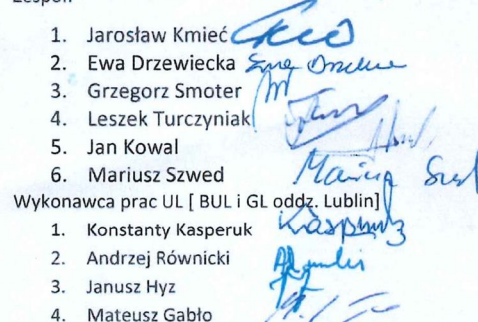 1. Jarosław Kmieć
2. Ewa Drzewiecka Ewa Drzewiecka
3. Grzegorz Smoter
4. Leszek Turczyniak
5. Jan Kowal
6. Mariusz Szwed Mariusz Szwed
Wykonawca prac UL [ BUL i GL oddz. Lublin]
1. Konstanty Kasperuk
2. Andrzej Równicki
3. Janusz Hyz
4. Mateusz Gabło